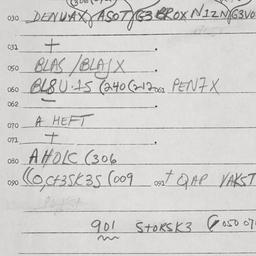 030 DENVAX (ASOT (G3 BROX N12N (G3VO
031 +
050 BLAS / BLAJX
060 BL8U.1S (240 (212 061 PEN7X
062 –
070 A HEFT
071 +
080 AHOLC (306
090 ((O, C+3SK3S (009 091 + QAP VAKST
901 S+OKSK3 (050 07